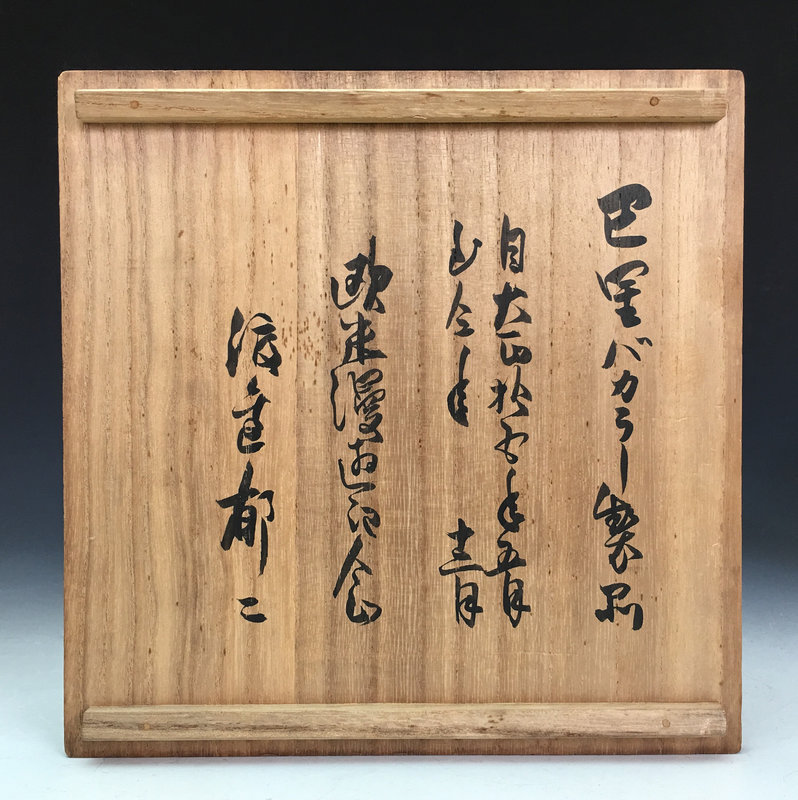 巴里バカラー製品
自大正拾年五月
至仝年 月
欧米漫遊記念
渡邊郁二